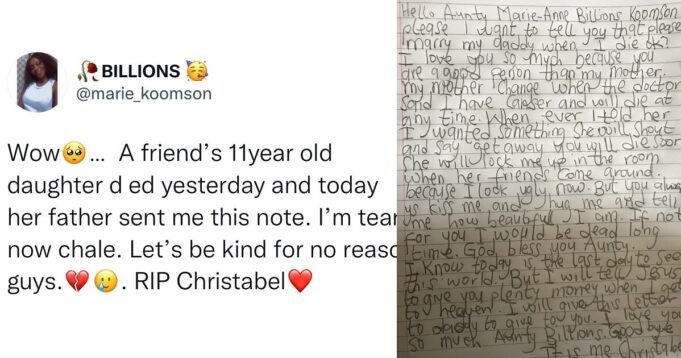 🥀BILLIONS 🥳
@marie_koomson
Wow🥺… A friend’s 11year old
daughter d ed yesterday and today
her father sent me this note. I’m tear
now chale. Let’s be kind for no reaso
guys.💔🥲. RIP Christabel❤️
Hello Aunty Marie-Anne Billions Koomson
please I want to tell you that please
marry my daddy when I die ok?
I love you so much because you
are a good person than my mother.
my mother change when the doctor
said I have canser and will die at
any time. When ever I told her
I wanted something She will shout
and say get away you will die soon
She will lock me up in the room
when her friends come around.
because I look ugly now. But you alway
us kiss me and hug me and tell
me how beautiful I am. If not
for you I would be dead long
time. God bless you Aunty.
I know today is the last day to see
this world. But I will tell Jesus
to give you plenty money when I get
to heaven. I will give this letter
to daddy to give to you. I love you
so much Aunty Billions. Good bye
It is me Christabe